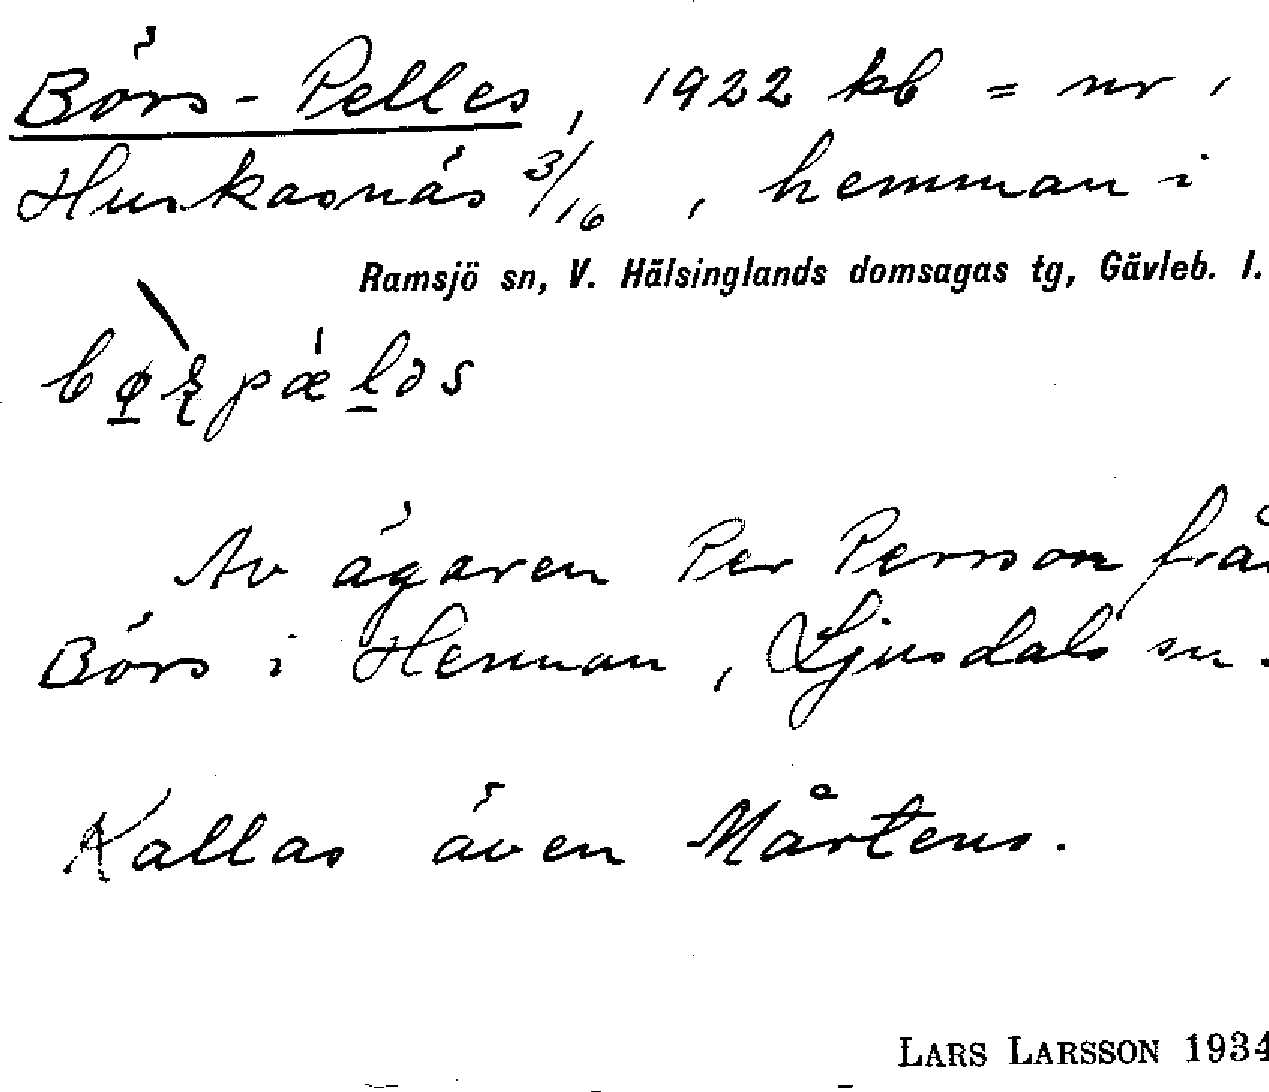 Börs-Pelles, 1922 kb = nr 1
Huskasnäs 3/16, hemman i
Ramsjö sn, V. Hälsinglands domsagas tg, Gävleb. l.
Av ägaren Per Persson frå
Börs i Hennan, Ljusdals sn.
Kallas även Mårtens.
LARS LARSSON 1934